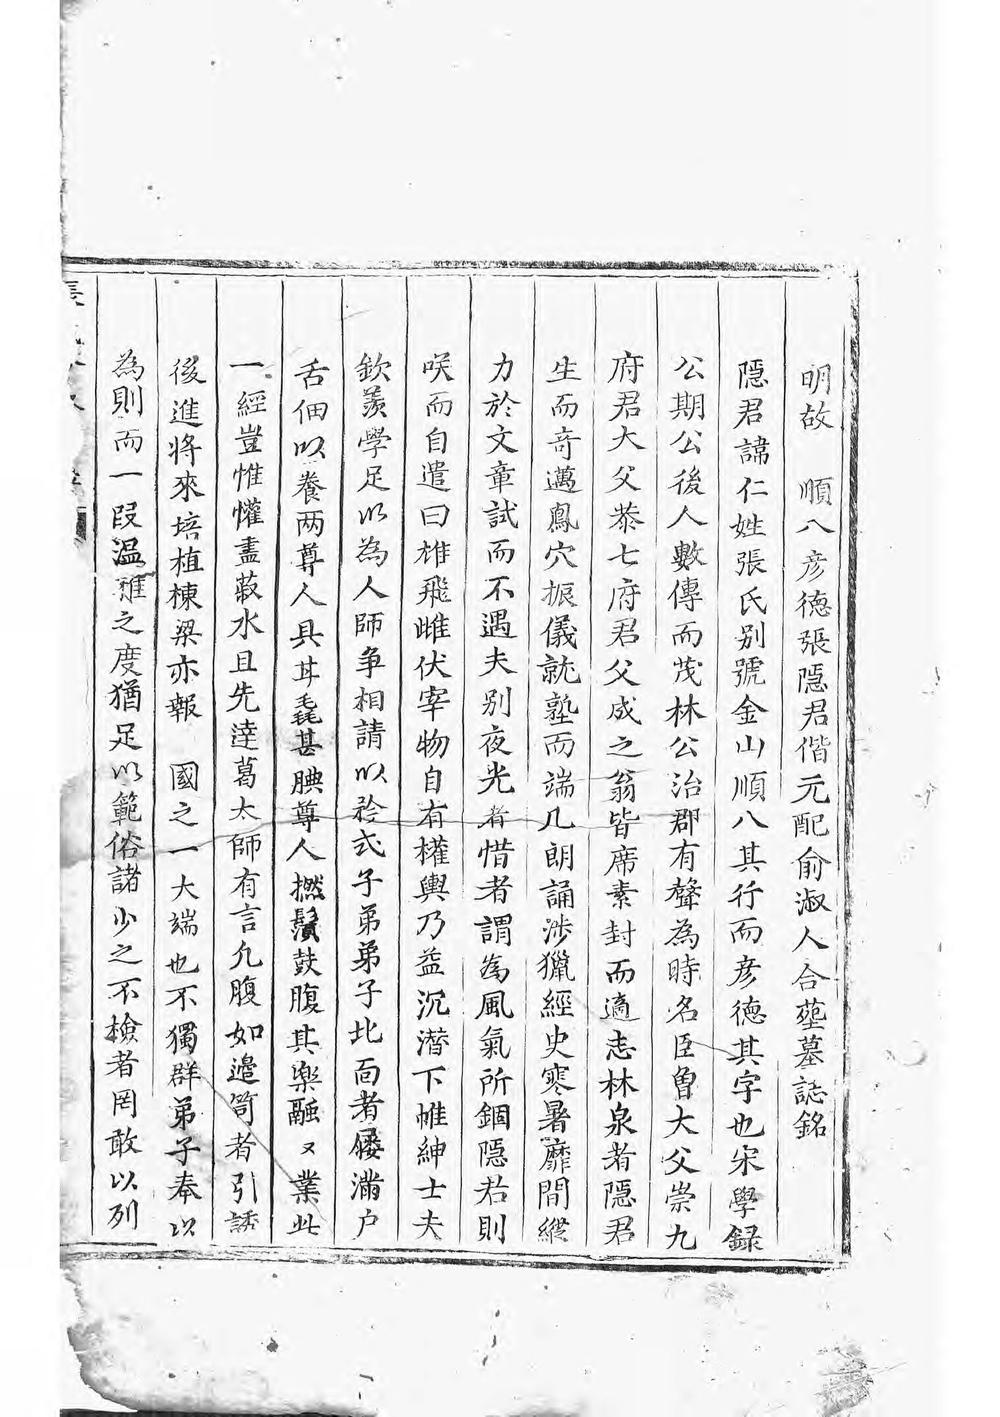 明故　順八彦德張隱君偕元配俞淑人合塟墓誌銘
隱君諱仁姓張氏别號金山順八其行而彦德其字也宋學録
公期公後人數傳而茂林公治郡有聲為時名臣曾大父崇九
府君大父恭七府君父成之翁皆席素封而適志林泉者隱君
生而竒邁鳳穴振儀就塾而端几朗誦涉獵經史寒暑靡間縱
力於文章試而不遇夫别夜光者惜者謂為風氣所錮隱君則
咲而自遣曰雄飛雌伏宰物自有權輿乃益沉潛下帷紳士夫
欽羨學足以為人師争相請以矜式子弟弟子北面者屢滿户
舌佃以養两尊人具耳毳甚腆尊人撚鬚鼓腹其樂融々業此
一經豈惟懽盡菽水且先達葛太師有言允腹如邉笥者引誘
後進将來培植棟梁亦報　國之一大端也不獨群弟子奉以
為則而一段温雅之度猶足以範俗諸少之不檢者罔敢以列